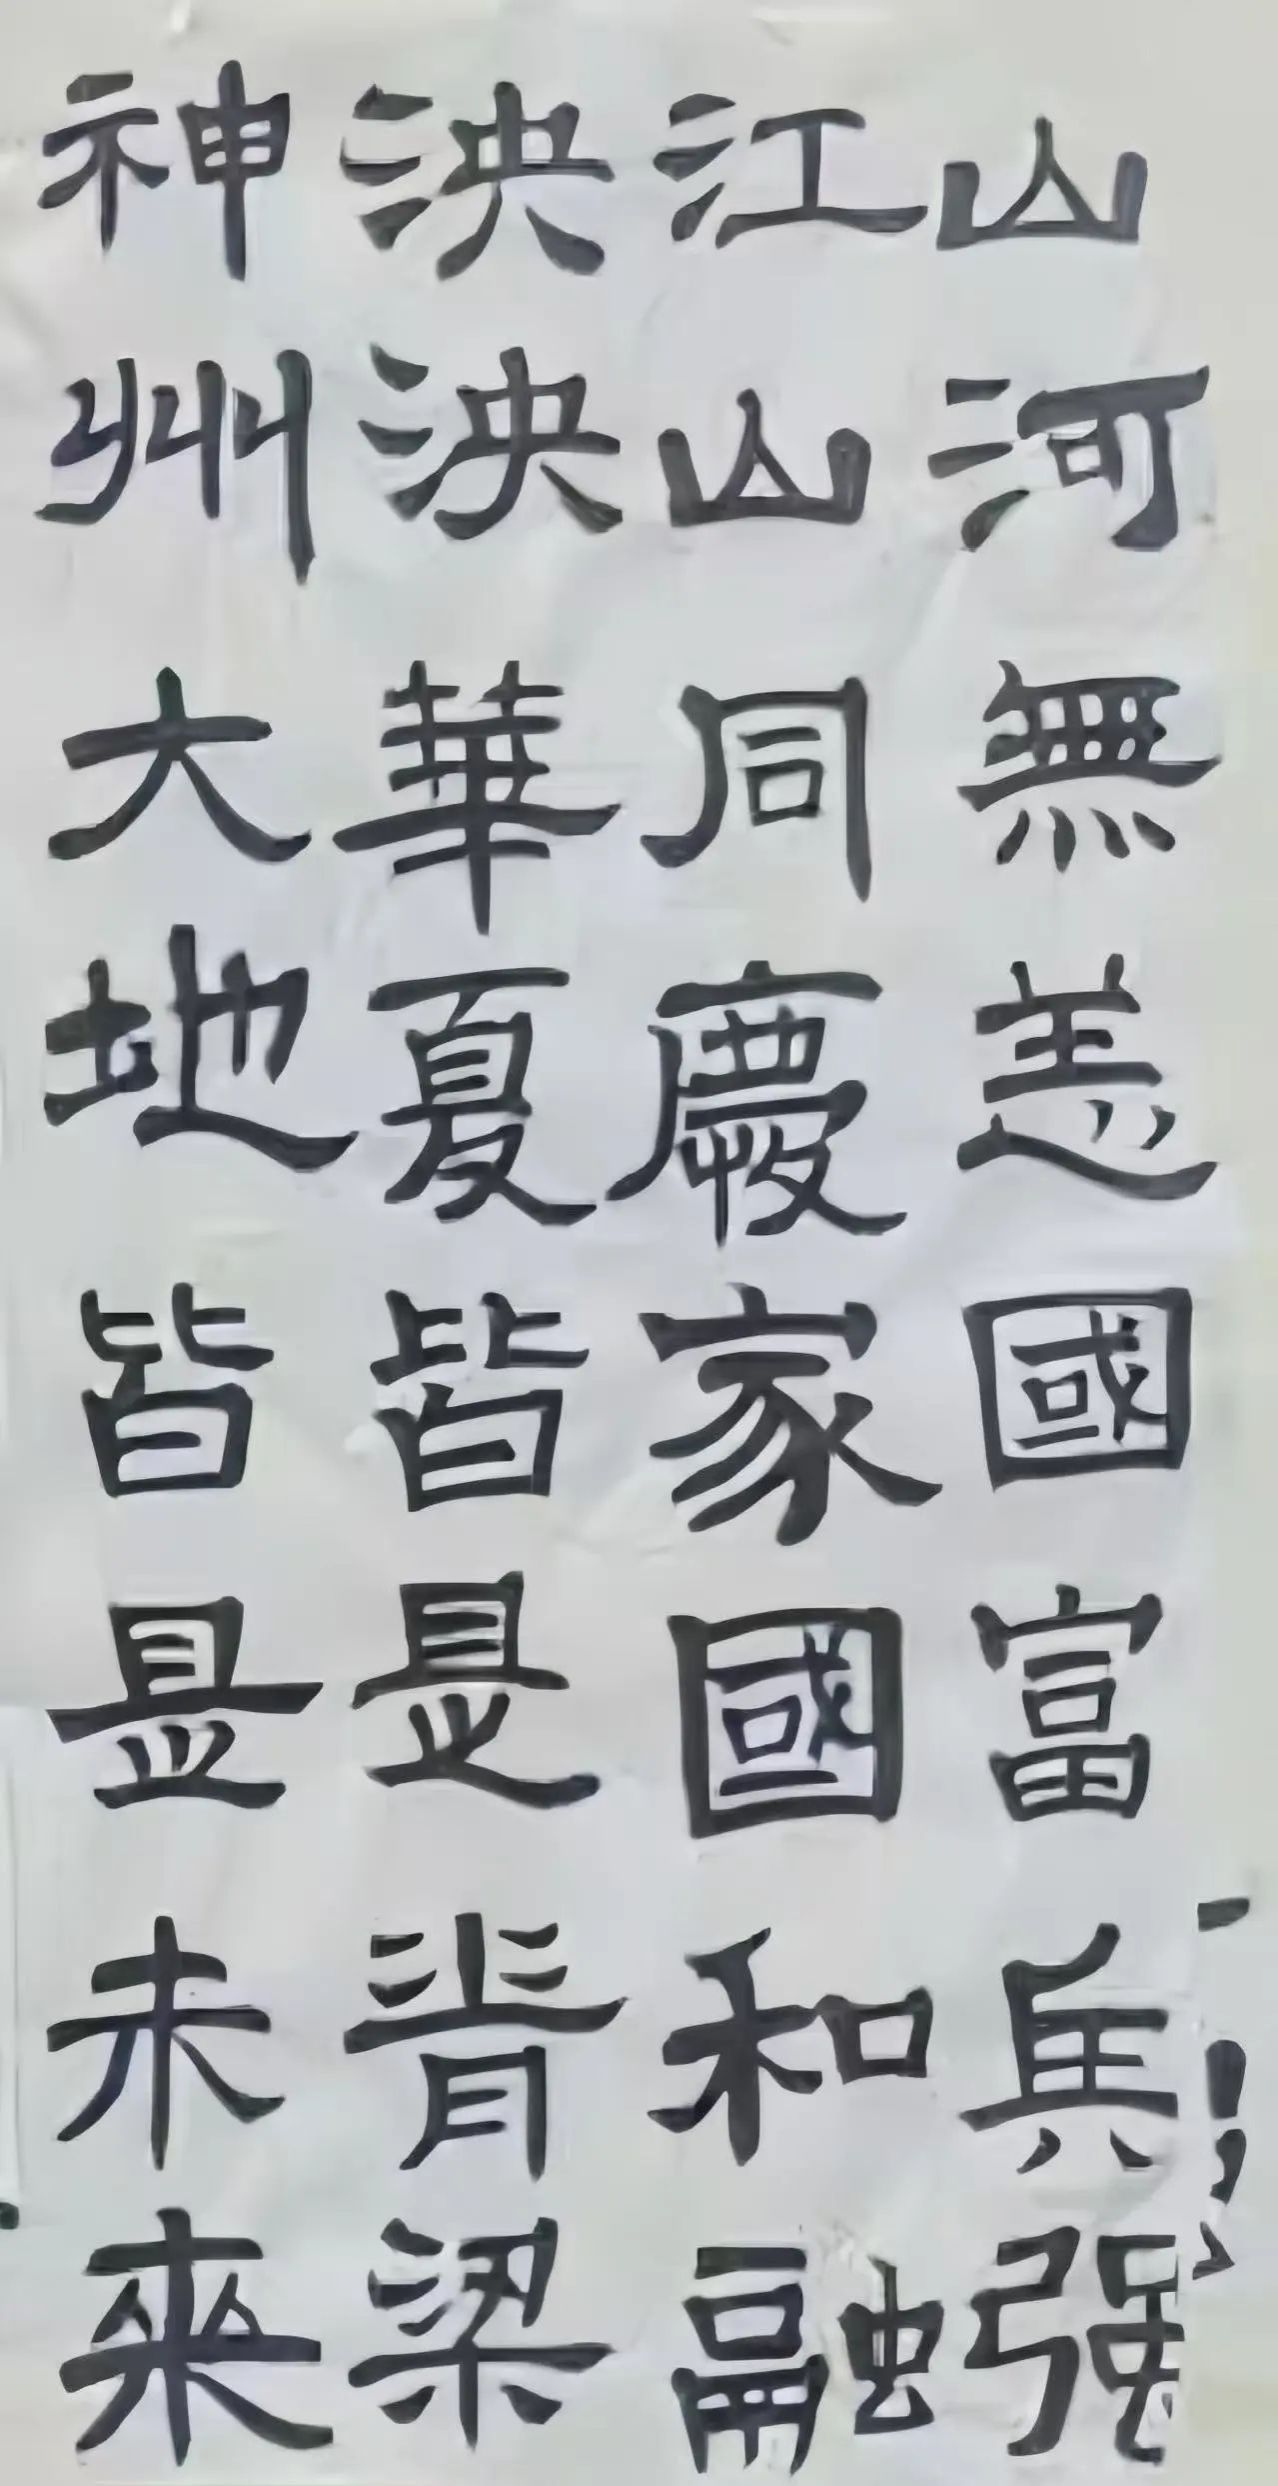 山河無恙國富兵强
江山同慶家國和融
泱泱華夏皆是脊梁
神州大地皆是未來